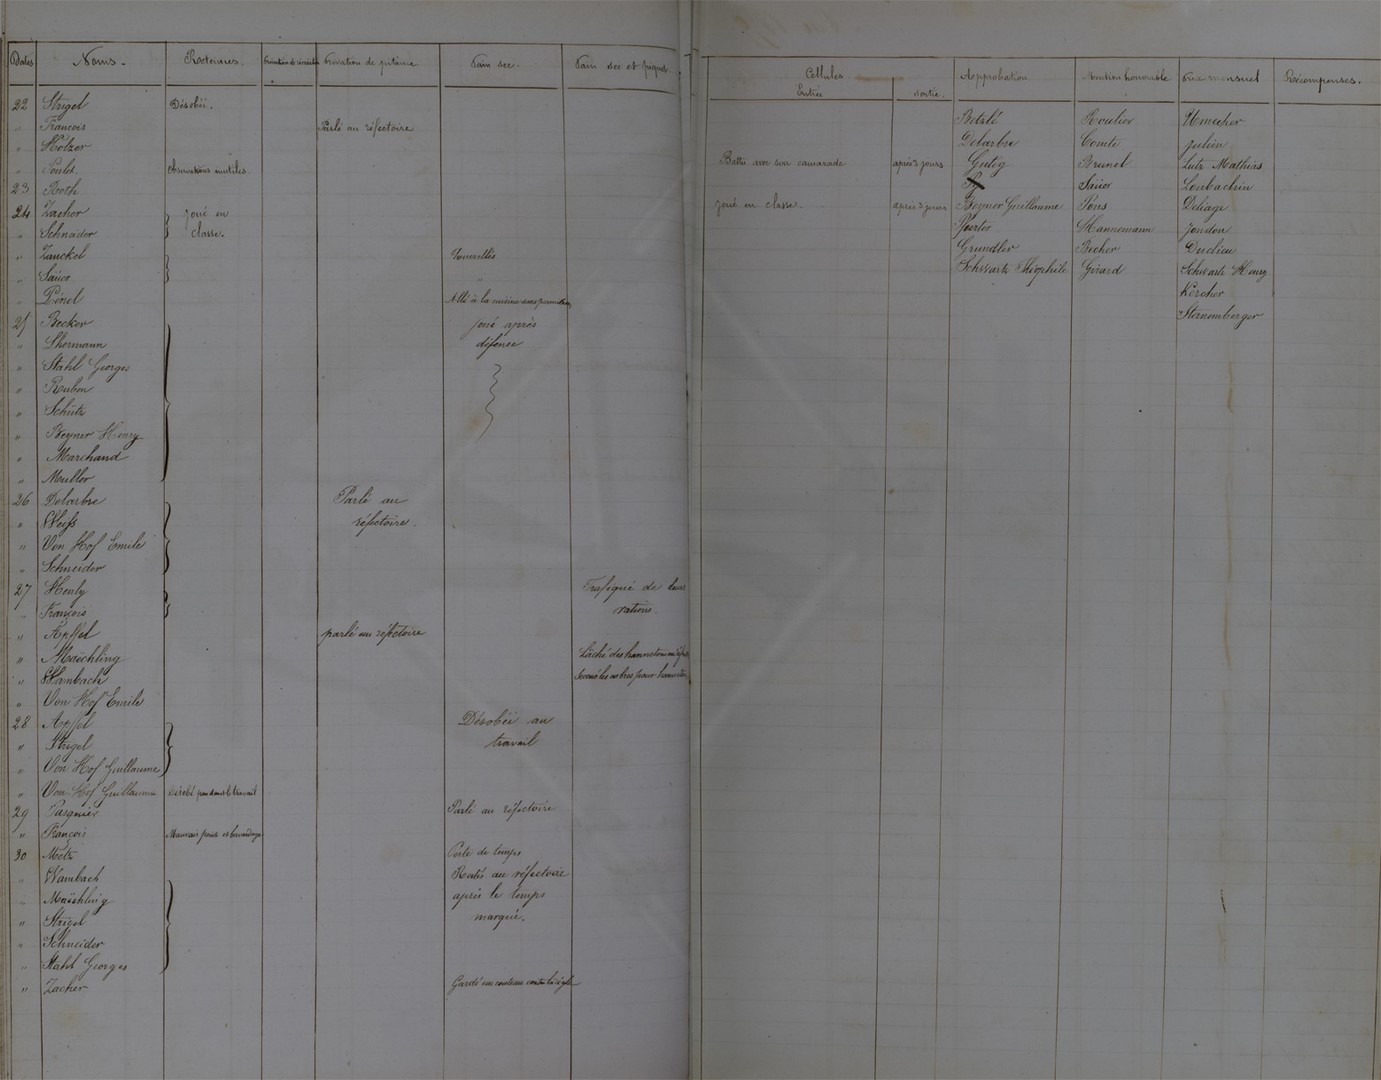 Dates Noms. Retenues. Privation de récréation Privation de pitance Pain sec. Pain sec et piquet.
22 Strigel Désobéi.
" François Parlé au réfectoire
" Hölzer
" Poulet. observations inutiles.
23 Roth
24 Zacher Joué en
" Schneider classe.
" Zanckel
" Saüer "
" Pénel Allé à la cuisine sans permission
25 Becker Joué après
" Ehrmann défence
" Stahl Georges
" Ruben
" Schütz
" Weymer Henry
" Marchand
" Meubler
26 Delarbre Parlé au
" Weiss réfectoire.
" Von Hof Emile
" Schneider
27 Henly Trafiqué de leurs
" François rations.
" Apffel parlé au réfectoire
" Maechling Lâché des hannetons
" Wambach Secoué les arbres pour
" Von Hof Emile
28 Apffel Désobéi au
" Strigel travail
" Von Hof Guillaume
" Von Hof Guillaume Désobéi pendant le travail
29 Pasquier Parlé au réfectoire
" François Mauvais point et bavardage
30 Metz Perte de temps
" Wambach Restés au réfectoire
" Maechling après le temps
" Strigel marqué.
" Schneider
" Stahl Georges
" Zacher Gardé un couteau contre la règle
Cellules Approbation Mention honorable Prix mensuel Récompenses.
Entrée Sortie.
Betzlé Roulier
Delarbre Comte Julien
Battu avec son camarade après 3 jours Gutig Brunel Lutz Mathias
Saüer
Joué en classe. après 3 jours Weymer Guillaume Pons Deliage
Hannemann Jondon
Grundler Becher
Schwartz Théophile Girard Schwartz Henry
Kercher
Sternemberger